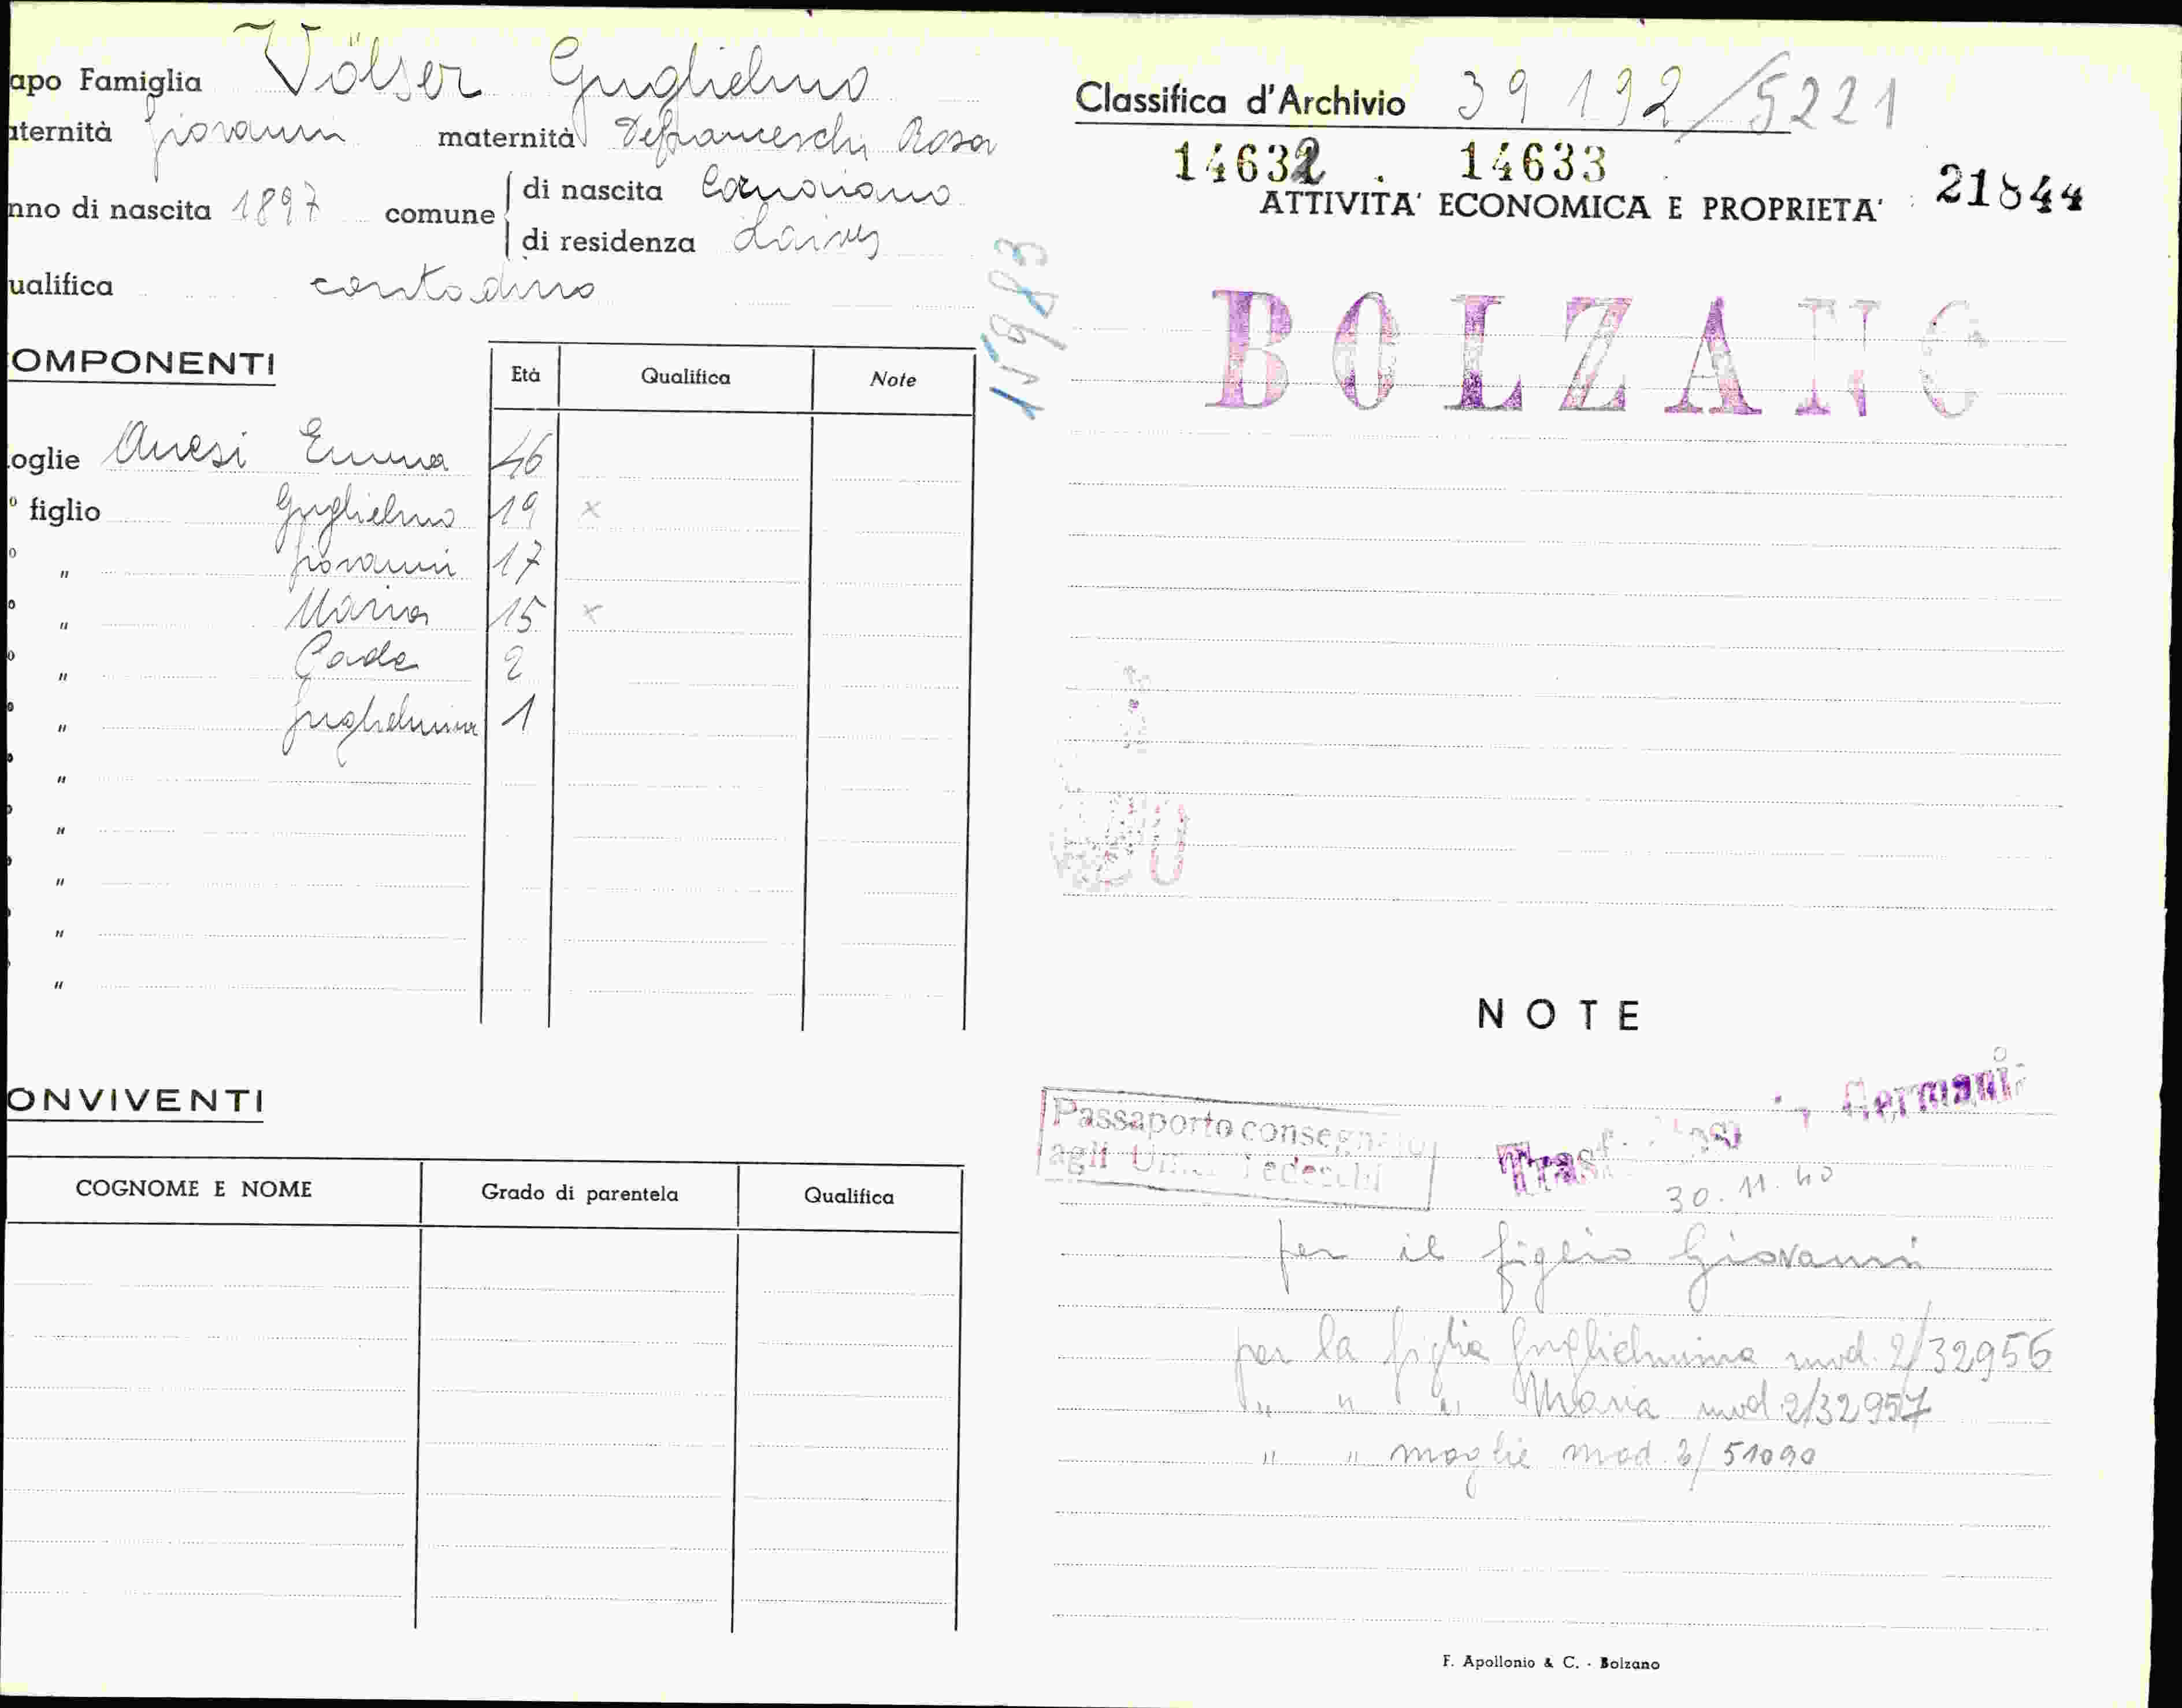 apo Famiglia Völser Guglielmo
aternità Giovanni maternità Defranceschi Rosa
nno di nascita 1897 comune di nascita Cornaiano
di residenza Laives
ualifica contadino
OMPONENTI
Età Qualifica Note
oglie Anesi Emma 46
° figlio Guglielmo 19 x
° " Giovanni 17
° " Maria 15 x
° " 2
° " Guglielmina 1
"
"
"
"
"
ONVIVENTI
COGNOME E NOME Grado di parentela Qualifica
Classifica d'Archivio 39 192/5221
14632 . 14633
ATTIVITA' ECONOMICA E PROPRIETA' 21844
15983
BOLZANO
NOTE
Passaporto consegnato
agli Uffici Tedeschi
Trasf. in Germania
30.11.40
per il figlio Giovanni
per la figlia Guglielmina mod. 2/32956
" " " Maria mod. 2/32957
" " moglie mod. 2/51090
F. Apollonio & C. - Bolzano